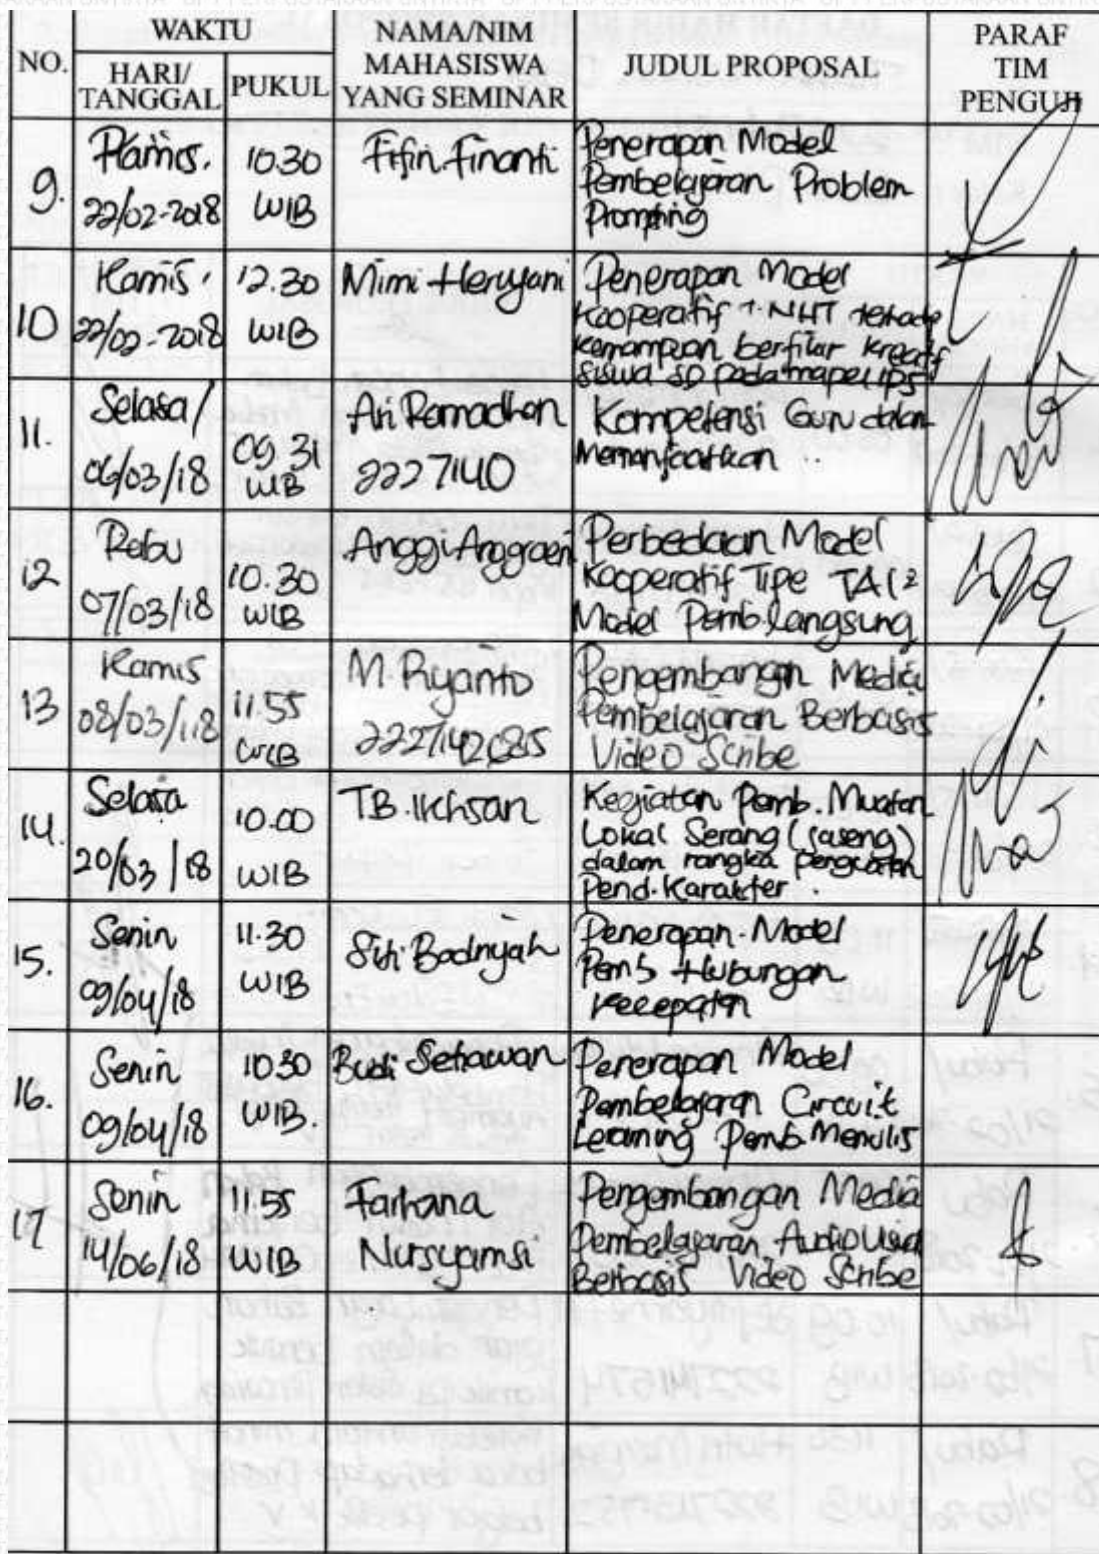 NO.
WAKTU
HARI/
TANGGAL
PUKUL
NAMA/NIM
MAHASISWA
YANG SEMINAR
JUDUL PROPOSAL
PARAF
TIM
PENGUJI
9.
Kamis,
22/02-2018
10.30
WIB
Fifin Finanti
Penerapan Model
Pembelajaran Problem
Prompting
10
Kamis,
22/02-2018
12.30
WIB
Mimi Heryani
Penerapan Model
Kooperatif T. NHT
kemampuan berfikir kreatif
siswa SD pada mapel IPS
11.
Selasa/
06/03/18
09 31
WIB
Ari Ramadhan
2227140
Kompetensi Guru dalam
Memanfaatkan ..
12
Rabu
07/03/18
10.30
WIB
Anggi Anggraeni
Perbedaan Model
Kooperatif Tipe TAI
Model Pemb langsung
13
Kamis
08/03/18
11.55
WIB
M. Riyanto
Pengembangan Media
Pembelajaran Berbasis
Video Scribe
14.
Selasa
20/03/18
10.00
WIB
TB. Ikhsan
Kegiatan Pemb. Muatan
Lokal Serang (
dalam rangka penguatan
Pend. Karakter.
15.
Senin
09/04/18
11.30
WIB
Siti Badriyah
Penerapan Model
Pemb Hubungan
kecepatan
16.
Senin
09/04/18
10 30
WIB.
Budi Setiawan
Penerapan Model
Pembelajaran Circuit
Leraning Pemb. Menulis
17
Senin
14/06/18
11.55
WIB
Farhana
Nursyamsi
Pengembangan Media
Pembelajaran Audio
Berbasis Video Scribe